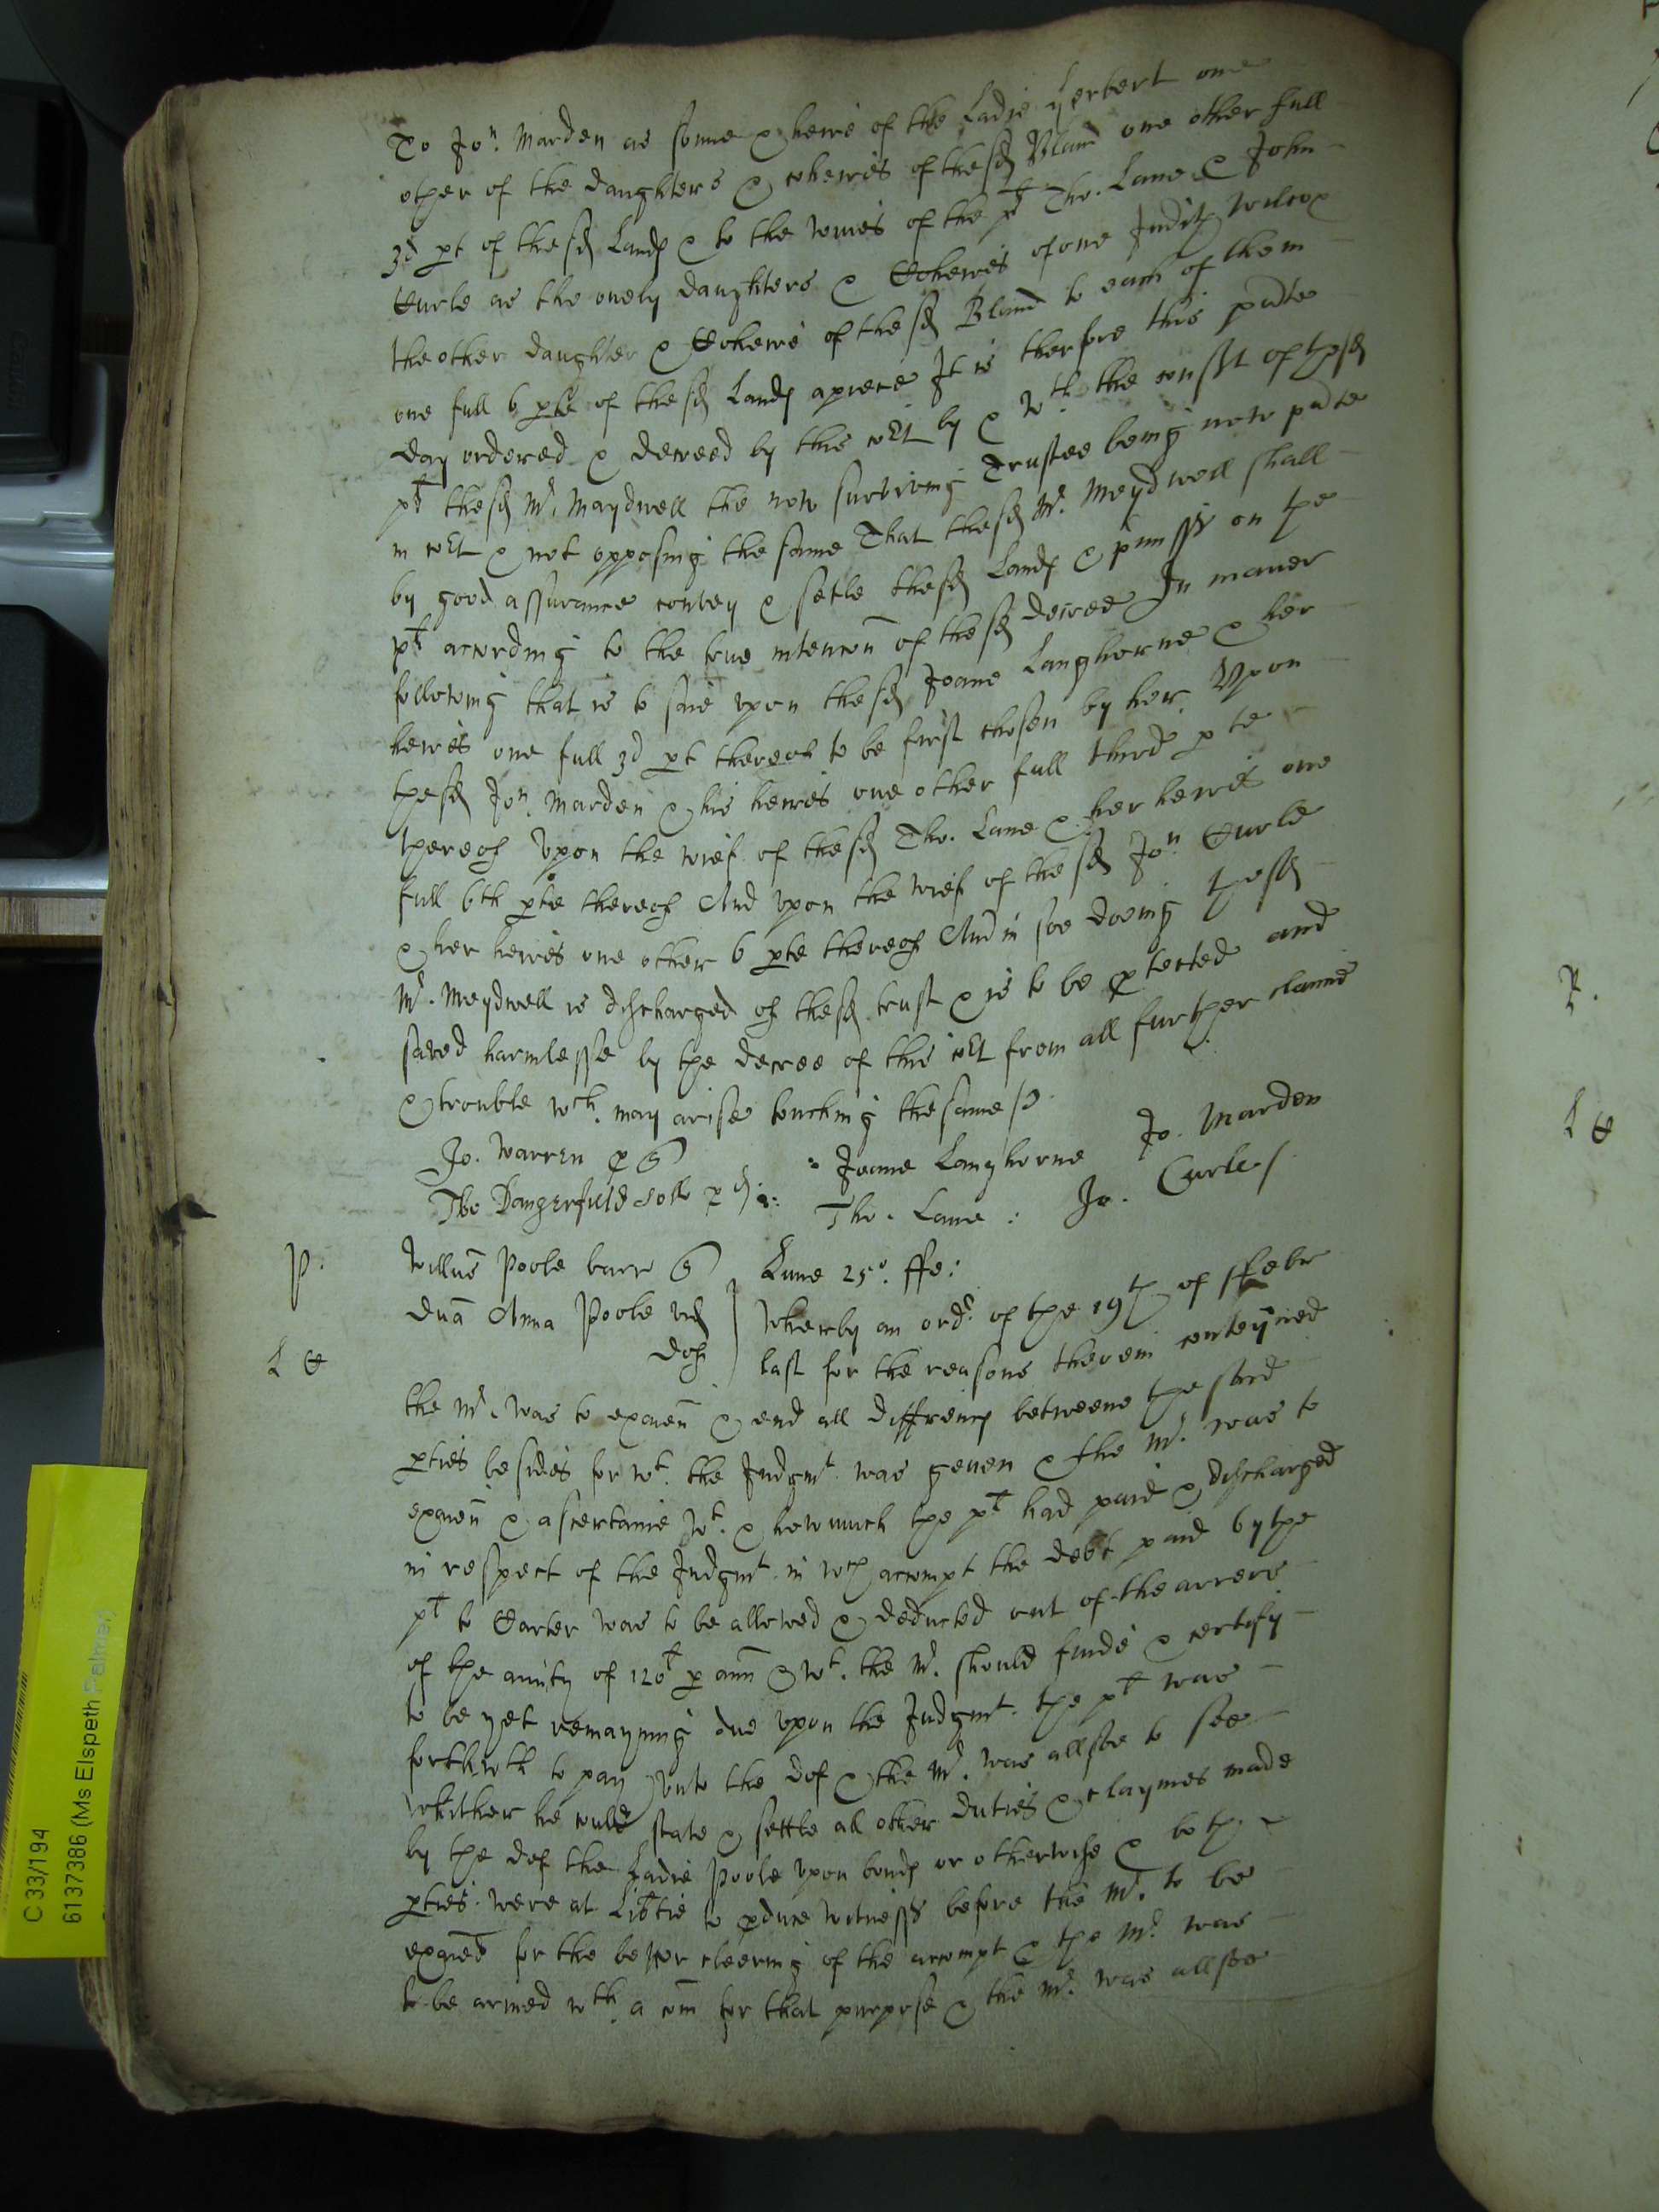 To Jon. Marden as sonne & heire of the Ladie Herbert one
other of the daughters & coheires of the sd Bland one other full
3d pt of the sd Lands & to the wives of the pt Tho. Lane & John
Curle as the onely daughters & Coheires of one Judith Wilcox
the other daughter & Coheire of the sd Bland to each of them
one full 6 pte of the sd Lands apiece It is therfore this pnte
day ordered & decreed by this cort by & wth the consst of the sd
pt the sd Mr. Maydwell the now surviving Trustee being now pnte
in cort & not opposing the same That the sd Mr. Meydwell shall
by good assurance convey & setle the sd Lands & pmisses on the
pts according to the true intencon of the sd decree In maner
following that is to saie upon the sd Joane Langhorne & her
heires one full 3d pt thereof to be first chosen by her. Upon
the sd Jon. Marden & his heires one other full third pte
thereof Upon the wief of the sd Tho. Lane & her heires one
full 6th pte thereof And upon the wief of the sd Jon Curle
& her heires one other 6 pte thereof And in soe doeing the sd
Mr. Meydwell is discharged of the sd trust & is to be ptected and
saved harmlesse by the decree of this cort from all further clayme
& trouble wch. may arise touching the same
Jo. Warren Joane Langhorne Jo. Marden
Tho Dangerfield Tho. Lane: Jo. Curle/
P. Willus Poole barr Lune 25o. ffe:
Dna Anna Poole vid Whereby an ordr. of the 19th of ffebr
L C def last for the reasons therein conteyned
the Mr. was to examen & end all differencs betweene the said
pties besides for wt. the Judgmt. was geven & the Mr. was to
examen & ascertaine wt. & how much the pt had paid & discharged
in respect of the Judgmt. in wch accompt the debt paid by the
pt to Carter was to be allowed & deducted out of the arrers
of the anity of 120l p ann & wt. the Mr. should finde & certefy
to be yet remayning due upon the Judgmt. the pt was
forthwth to pay unto the def & the Mr. was allsoe to see
whither he could state & settle all other duties & claymes made
by the def the Ladie Poole upon bonds or otherwise & both
pties were at Libtie to pduce witnesses before the Mr. to be
examed for the better cleering of the accompt & the Mr. was
to be armed wth. a com for that purpose & the Mr. was allsoe
P.
L C
C 33/194
6137386 (Ms Elspeth Palmer)